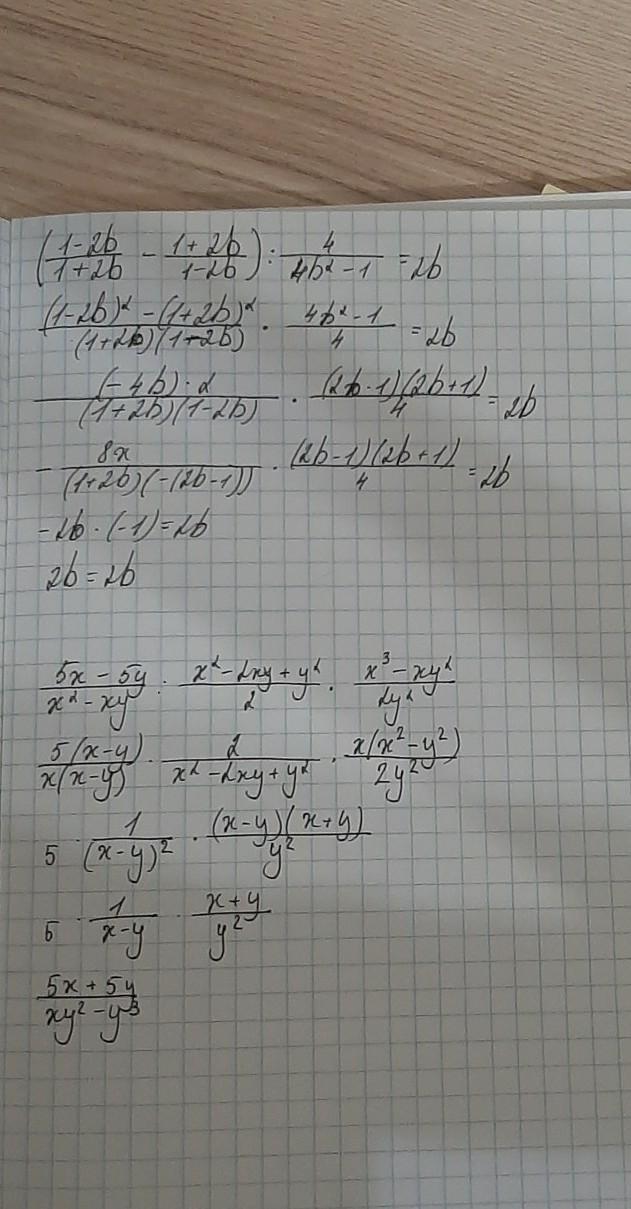 (1-2b/1+2b - 1+2b/1-2b) : 4/4b²-1 = 2b
(1-2b)²-(1+2b)²/(1+2b)(1-2b) · 4b²-1/4 = 2b
(-4b)·2/(1+2b)(1-2b) · (2b-1)(2b+1)/4 = 2b
- 8x/(1+2b)(-(2b-1)) · (2b-1)(2b+1)/4 = 2b
-2b·(-1)=2b
2b=2b
5x-5y/x²-xy : x²-2xy+y²/2 · x³-xy²/2y²
5(x-y)/x(x-y) · 2/x²-2xy+y² · x(x²-y²)/2y²
5 · 1/(x-y)² · (x-y)(x+y)/y²
5 · 1/x-y · x+y/y²
5x+5y/xy²-y³